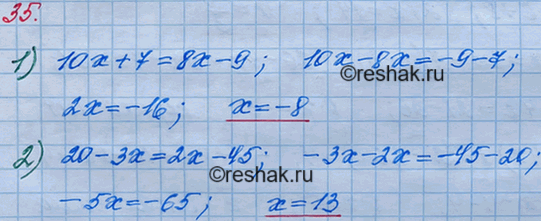 35.
1) 10x+7=8x-9; 10x-8x=-9-7;
©reshak.ru
2x=-16; x=-8
2) 20-3x=2x-45; -3x-2x=-45-20;
©reshak.ru
-5x=-65; x=13